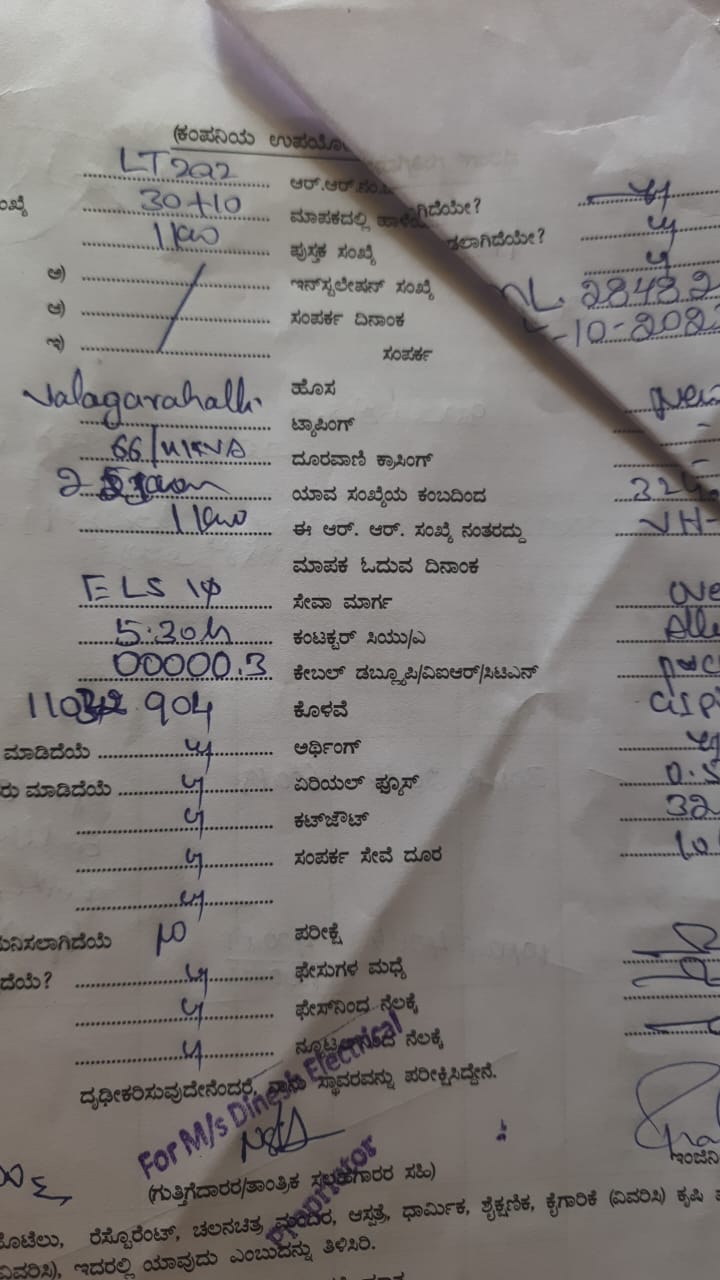 (ಕಂಪನಿಯ ಉಪಯೋ
LT2a2 ಆರ್.ಆರ್.ನಂ.
30+10 ಮಾಪಕದಲ್ಲಿ ಗಿದೆಯೇ?
1 kw ಪುಸ್ತಕ ಸಂಖ್ಯೆ ಡಲಾಗಿದೆಯೇ? y
ಅ) ಇನ್‌ಸ್ಟಲೇಷನ್ ಸಂಖ್ಯೆ 28482
ಆ) ಸಂಪರ್ಕ ದಿನಾಂಕ -10-202
ಇ) ಸಂಪರ್ಕ
Jalagarahalli ಹೊಸ
ಟ್ಯಾಪಿಂಗ್ -
66/11KVA ದೂರವಾಣಿ ಕ್ರಾಸಿಂಗ್ -
ಯಾವ ಸಂಖ್ಯೆಯ ಕಂಬದಿಂದ 324
1 kw ಈ ಆರ್. ಆರ್. ಸಂಖ್ಯೆ ನಂತರದ್ದು VH-
ಮಾಪಕ ಓದುವ ದಿನಾಂಕ
ELS 1φ ಸೇವಾ ಮಾರ್ಗ ove
5.30 ಕಂಟಕ್ಟರ್ ಸಿಯು/ಎ Alle
00000.3 ಕೇಬಲ್ ಡಬ್ಲ್ಯೂಪಿ/ವಿಐಆರ್/ಸಿಟಿಎನ್
904 ಕೊಳವೆ GIP
ಮಾಡಿದೆಯೆ y ಅರ್ಥಿಂಗ್ y
ರು ಮಾಡಿದೆಯೆ y ಏರಿಯಲ್ ಫ್ಯೂಸ್ 0.5
y ಕಟ್‌ಜೌಟ್ 32
y ಸಂಪರ್ಕ ಸೇವೆ ದೂರ 10
y
ುನಿಸಲಾಗಿದೆಯೆ NO ಪರೀಕ್ಷೆ
ದೆಯೇ? y ಫೇಸುಗಳ ಮಧ್ಯೆ
y ಫೇಸ್‌ನಿಂದ ನೆಲಕ್ಕೆ
y ನೂಟ್ರಲ್‌ನಿಂದ ನೆಲಕ್ಕೆ
ದೃಢೀಕರಿಸುವುದೇನೆಂದರೆ, ನಾನು ಸ್ಥಾವರವನ್ನು ಪರೀಕ್ಷಿಸಿದ್ದೇನೆ.
For M/s Dinesh Electrical
Proprietor
ಇಂಜಿನಿ
(ಗುತ್ತಿಗೆದಾರರ/ತಾಂತ್ರಿಕ ಸಲಹೆಗಾರರ ಸಹಿ)
ಹೊಟೆಲು, ರೆಸ್ಟೊರೆಂಟ್, ಚಲನಚಿತ್ರ ಮಂದಿರ, ಆಸ್ಪತ್ರೆ, ಧಾರ್ಮಿಕ, ಶೈಕ್ಷಣಿಕ, ಕೈಗಾರಿಕೆ (ವಿವರಿಸಿ) ಕೃಷಿ
ವಿವರಿಸಿ), ಇದರಲ್ಲಿ ಯಾವುದು ಎಂಬುದನ್ನು ತಿಳಿಸಿರಿ.